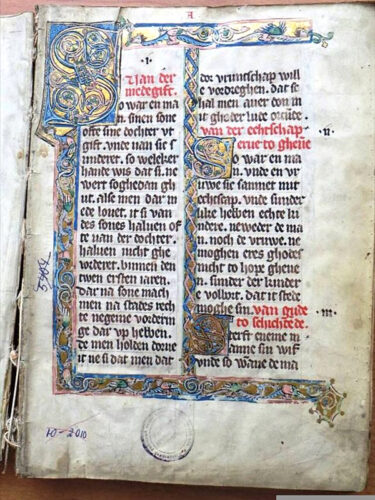 A
·I·
Van der
medegift.
So war en ma
n. sinen sone
ofte sine dochter ut
gift. unde van sic s
underet. so welcker
hande wis dat si. ne
wert soghedan gh
ut. alse men dar in
ede lovet. it si van
des sones halven of
te van der dochter
halven nicht ghe
vorderet. binnen den
twen ersten iaren.
dar na sone mach
men na stades rech
te negeine vorderin
ge dar up hebben.
de men holden dorve
it ne si dat men dat
dor vruntschap wille
e vordreghen. dat sc
hal men aver don in
it ghelder lude orcunde.
van der echtschap ·II·
erue to gheue
So war en ma
n. unde en vr
uwe sic samnet mit
echtscap. unde sunder
like hebben echte lu
ndere. neweder de ma
n. noch de vruwe. ne
moghen eres ghodes
nicht to hope gheue
n. sunder der kinder
e volwrt. dat it stede
moghe sin. van gude ·III·
to schichtede.
Sterft eneme m
anne sin wif
unde so wane de ma
Ю-2010